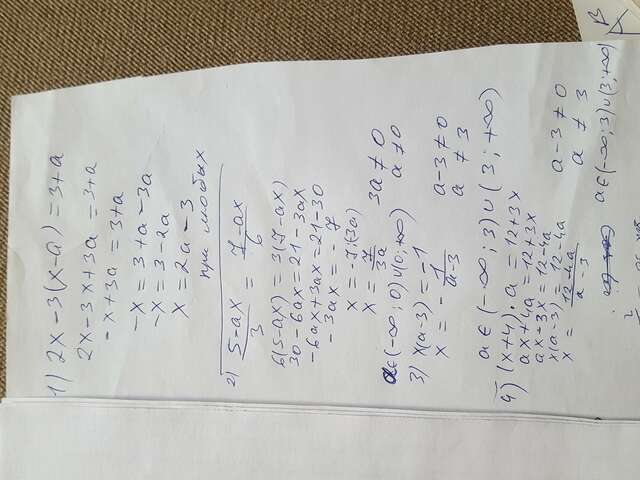 1) 2x - 3(x - a) = 3 + a
2x - 3x + 3a = 3 + a
-x + 3a = 3 + a
-x = 3 + a - 3a
-x = 3 - 2a
x = 2a - 3
при любых
2) (5-ax)/3 = (7-ax)/6
6(5-ax) = 3(7-ax)
30 - 6ax = 21 - 3ax
-6ax + 3ax = 21 - 30
-3ax = -7
x = -7:(3a)
x = 7/(3a) 3a ≠ 0
a ≠ 0
a ∈ (-∞; 0) ∪ (0; +∞)
3) x(a-3) = -1
x = - 1/(a-3) a-3 ≠ 0
a ≠ 3
a ∈ (-∞; 3) ∪ (3; +∞)
4) (x+4)·a = 12 + 3x
ax + 4a = 12 + 3x
ax - 3x = 12 - 4a
x(a-3) = 12 - 4a
x = (12-4a)/(a-3) a-3 ≠ 0
a ≠ 3
a ∈ (-∞; 3) ∪ (3; +∞)